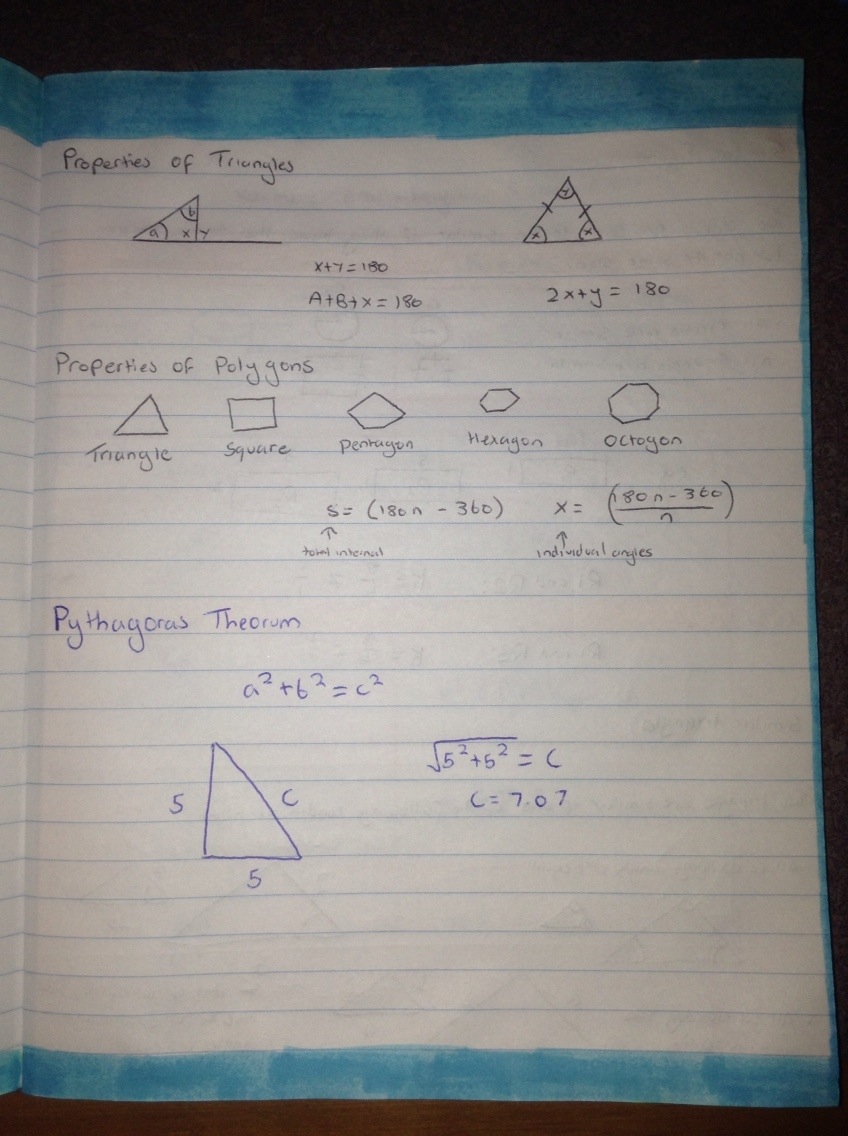 Properties of Triangles
b
a x y
y
x x
x+y=180
A+B+x=180
2x+y = 180
Properties of Polygons
Triangle Square Pentagon Hexagon Octogon
S= (180n - 360) x= (180n - 360 / n)
↑ ↑
total internal individual angles
Pythagoras Theorum
a²+b²=c²
√5²+5² = C
5 C
C= 7.07
5